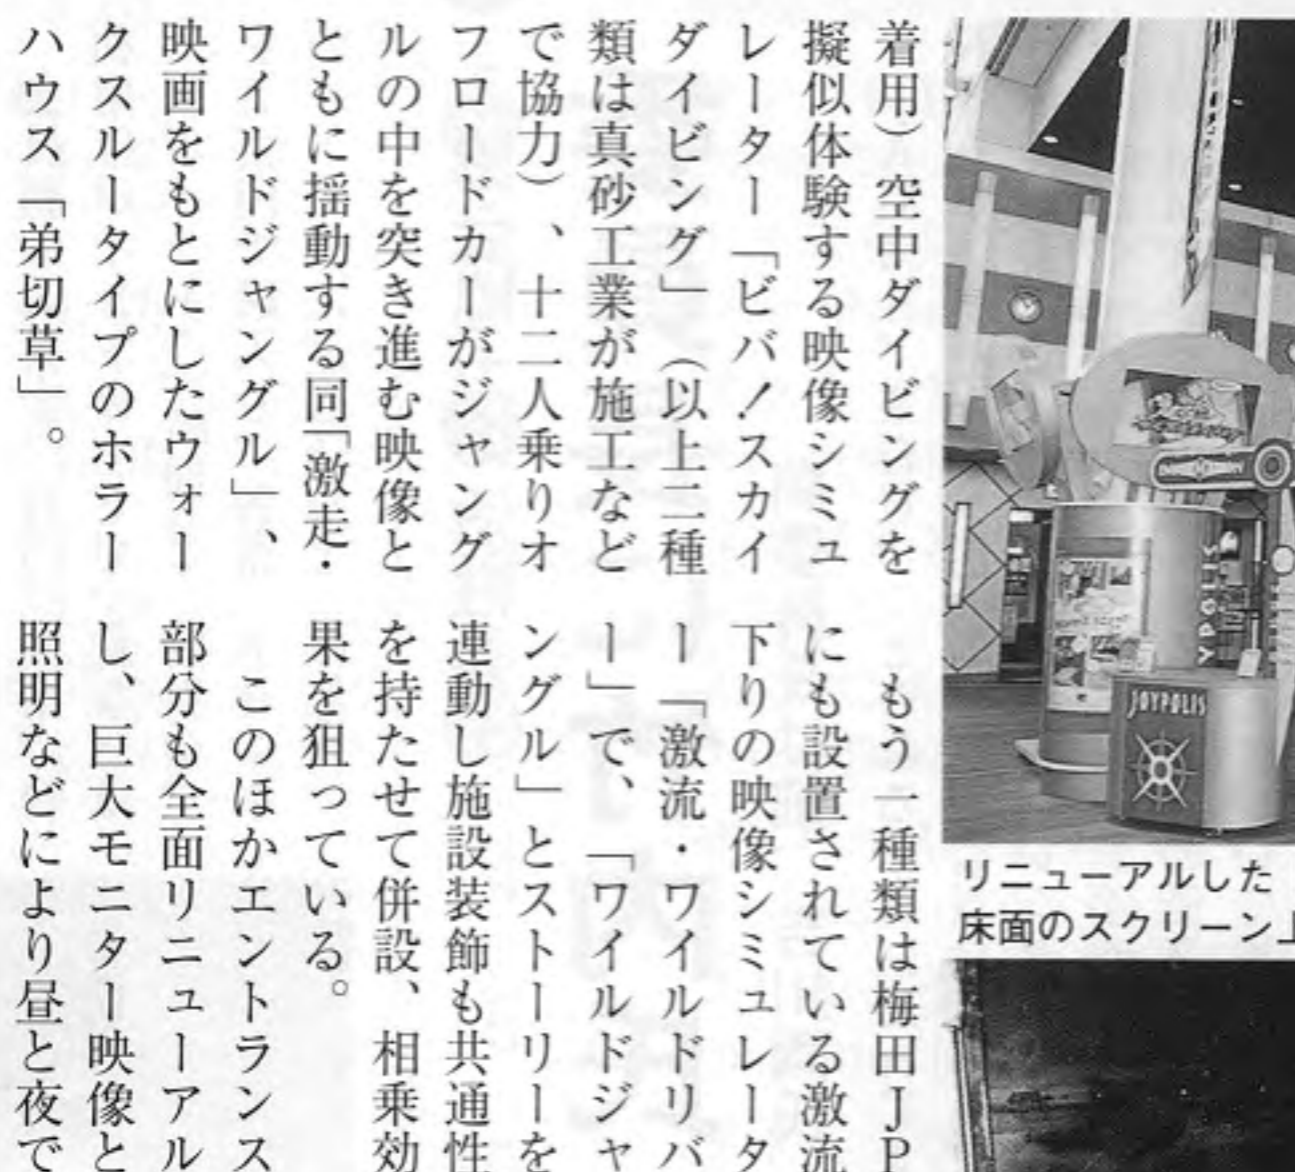 着用）空中ダイビングを
擬似体験する映像シミュ
レーター「ビバ！スカイ
ダイビング」（以上二種
類は真砂工業が施工など
で協力）、十二人乗りオ
フロードカーがジャング
ルの中を突き進む映像と
ともに揺動する同「激走・
ワイルドジャングル」、
映画をもとにしたウォー
クスルータイプのホラー
ハウス「弟切草」。
もう一種類は梅田ＪＰ
にも設置されている激流
下りの映像シミュレータ
ー「激流・ワイルドリバ
ー」で、「ワイルドジャ
ングル」とストーリーを
連動し施設装飾も共通性
を持たせて併設、相乗効
果を狙っている。
このほかエントランス
部分も全面リニューアル
し、巨大モニター映像と
照明などにより昼と夜で
YPOLIS
JOYPOLIS
リニューアルした
床面のスクリーン上